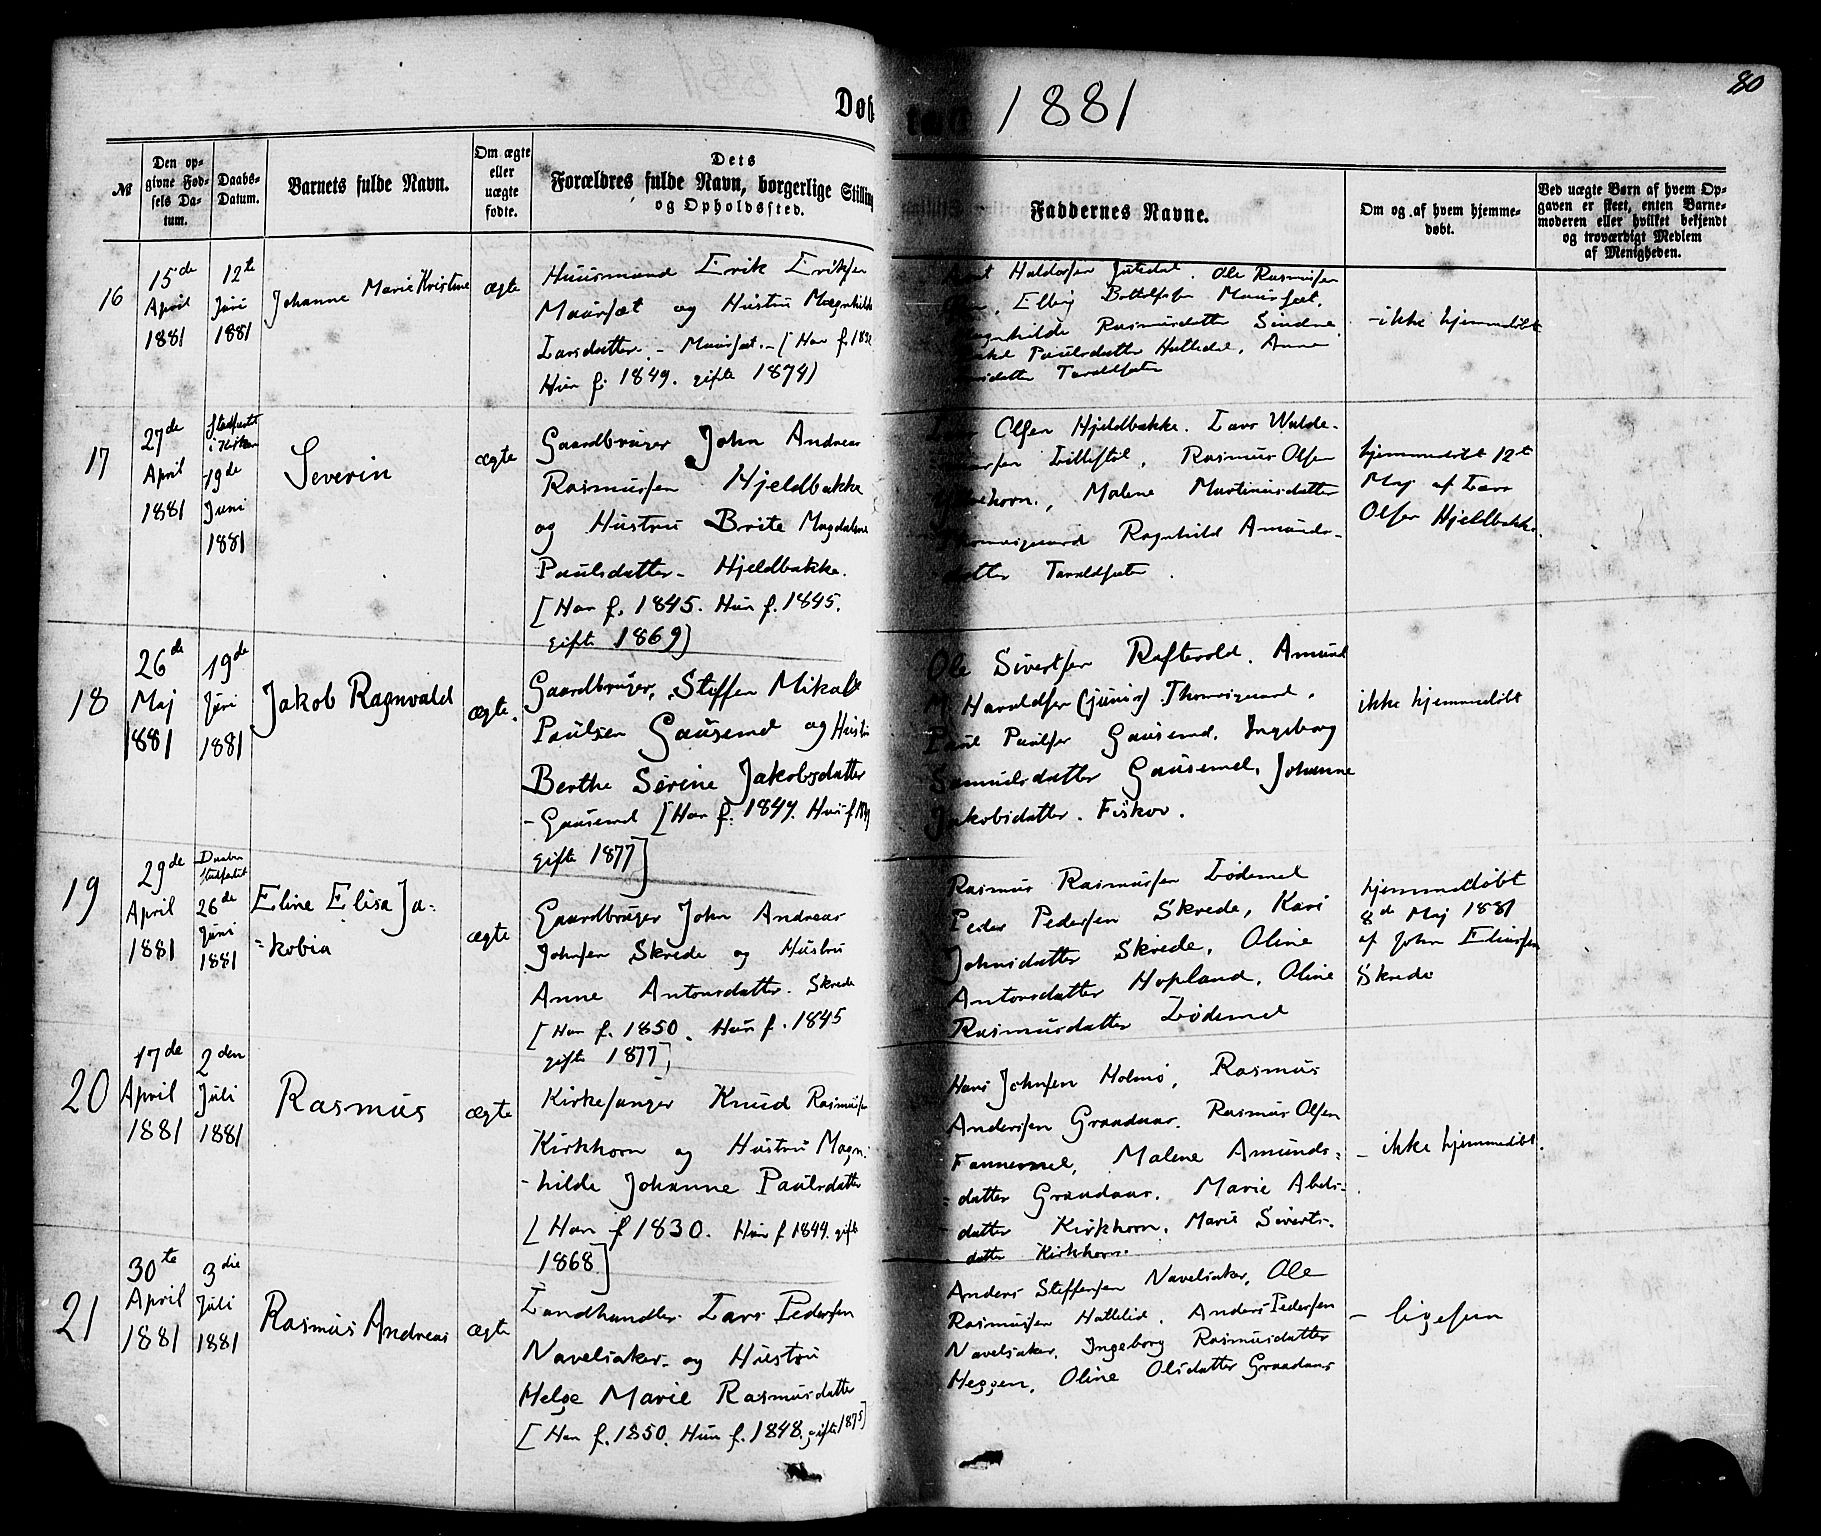 80
Døb
1881
№
Den op-
givne Fød-
sels Da-
tum.
Daabs-
Datum.
Barnets fulde Navn.
Om ægte
eller
uægte
fødte.
Dets
Forældres fulde Navn, borgerlige Stilling
og Opholdssted.
Faddernes Navne.
Om og af hvem hjemme-
døbt.
Ved uægte Børn af hvem Op-
gaven er skeet, enten Barne-
moderen eller hvilket bekjendt
og troværdigt Medlem
af Menigheden.
16
15de
April
1881
12te
Juni
1881
Johanne Marie Kristine
ægte
Huusmand Erik Eriksen
Maursæt og Hustru Magnhilde
Larsdatter. - Maursæt. - [Han f.
Hun f. 1849. gifte 1874)
Haldorsen Ole Rasmussen
Maursæt.
Rasmusdatter Sindre
Paulsdatter Anne
- ikke hjemmedøbt
17
27de
April
1881
Stadfæstet
i Kirken
19de
Juni
1881
Severin
ægte
Gaardbruger John Andreas
Rasmussen Hjeldbakke
og Hustru Brite Magdalene
Paulsdatter - Hjeldbakke.
[Han f. 1845. Hun f. 1845.
gifte 1869)
Olsen Hjeldbakke. Lars Walde-
Rasmus Olsen
Malene Martinusdatter
Ragnhild Amunds-
datter
hjemmedøbt 12te
Maj af Lars
Olsen Hjeldbakke.
18
26de
Maj
1881
19de
Juni
1881
Jakob Ragnvald
ægte.
Gaardbruger, Steffen Mikal
Paulsen Gausemel og Hustru
Berthe Serine Jakobsdatter
- Gausemel [Han f. 1847. Hun f
gifte 1877]
Ole Sivertsen Raftevold. Amund
M. Haraldsen (junior) Thomasgaard.
Paul Paulsen Gausemel. Ingeborg
Samuelsdatter Gausemel, Johanne
Jakobsdatter. Fiskov.
ikke hjemmedøbt
19
29de
April
1881
Daaben
stadfæstet
26de
Juni
1881
Eline Elisa Ja=
=kobia
ægte
Gaardbruger John Andreas
Johnsen Skrede og Hustru
Anne Antonsdatter. Skrede
[Han f. 1850. Hun f. 1845
gifte 1877]
Rasmus Rasmussen Lødemel
Peder Pedersen Skrede, Kari
Johnsdatter Skrede, Oline
Antonsdatter Hopland, Oline
Rasmusdatter Lødemel
hjemmedøbt
8de Maj 1881
af John Eliassen
Skrede
20
17de
April
1881
2den
Juli
1881
Rasmus
ægte
Kirkesanger Knud Rasmussen
Kirkhorn og Hustru Magn-
-hilde Johanne Paulsdatter
[Han f 1830. Hun f 1844. gift
1868]
Hans Johnsen Holmø, Rasmus
Anderssen Graadaas. Rasmus Olsen
Fannemel, Malene Amunds=
=datter Graadaas. Marie Abels=
datter Kirkhorn. Marie Siverts-
datter Kirkhorn.
- ikke hjemmedøbt.
21
30te
April
1881
3die
Juli
1881
Rasmus Andreas
ægte
Landhandler Lars Pedersen
Navelsaker og Hustru
Helge Marie Rasmusdatter
[Han f. 1850. Hun f. 1848. gifte 1875]
Anders Steffensen Navelsaker, Ole
Rasmussen Hattelid. Anders Pedersen
Navelsaker. Ingeborg Rasmusdatter
Heggen. Oline Olsdatter Graadaas
- ligesaa